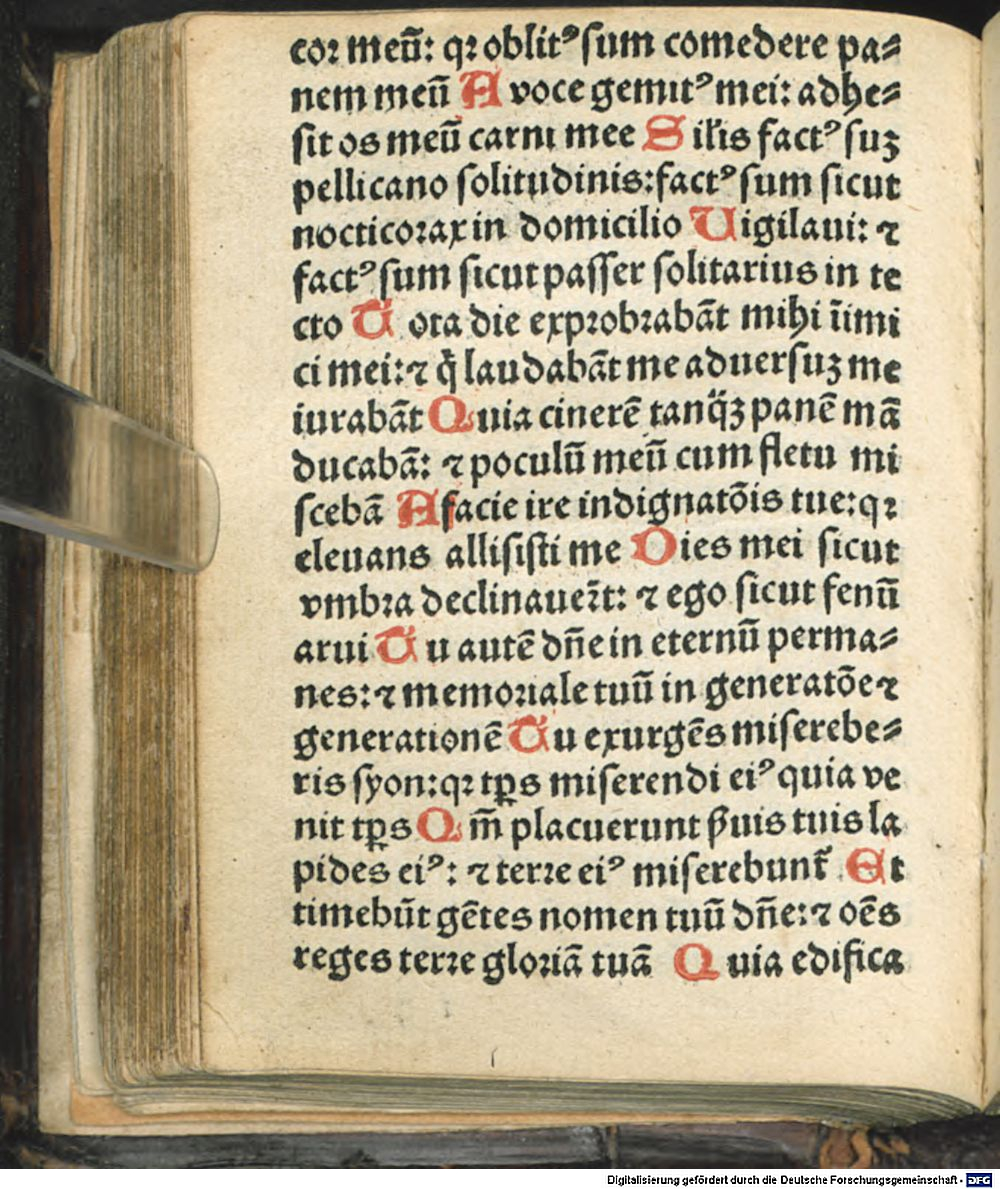 cor meū: qꝛ oblitꝰ sum comedere pa⸗
nem meū A voce gemitꝰ mei: adhe⸗
sit os meū carni mee Sil'is factꝰ suꝫ
pellicano solitudinis: factꝰ sum sicut
nocticorax in domicilio Uigilaui: ⁊
factꝰ sum sicut passer solitarius in te
cto Tota die exprobrabāt mihi īimi
ci mei: ⁊ q̄ laudabāt me aduersuꝫ me
iurabāt Quia cinerē tanq̄ꝫ panē mā
ducabā: ⁊ poculū meū cum fletu mi
scebā A facie ire indignatōis tue: qꝛ
eleuans allisisti me Dies mei sicut
vmbra declinauer̄t: ⁊ ego sicut fenū
arui Tu autē dn̄e in eternū perma⸗
nes: ⁊ memoriale tuū in generatōe ⁊
generationē Tu exurgēs miserebe⸗
ris syon: qꝛ tp̄s miserendi eiꝰ quia ve
nit tp̄s Qm̄ placuerunt ẞuis tuis la
pides eiꝰ: ⁊ terre eiꝰ miserebunt᷑ Et
timebūt gētes nomen tuū dn̄e: ⁊ oēs
reges terre gloriā tuā Quia edifica
Digitalisierung gefördert durch die Deutsche Forschungsgemeinschaft - DFG